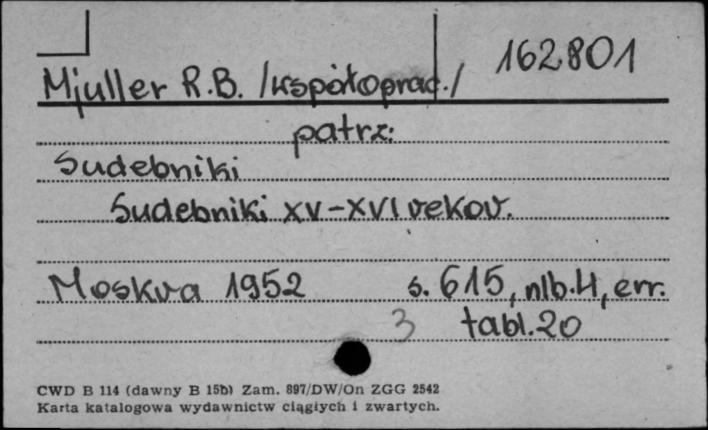 162801
Mjuller R.B. /współoprac./
patrz:
Sudebniki
Sudebniki XV-XVI vekov.
Moskva 1952 s. 615, nlb.4, err.
3 tabl.20
CWD B 114 (dawny B 15b) Zam. 897/DW/On ZGG 2542
Karta katalogowa wydawnictw ciągłych i zwartych.